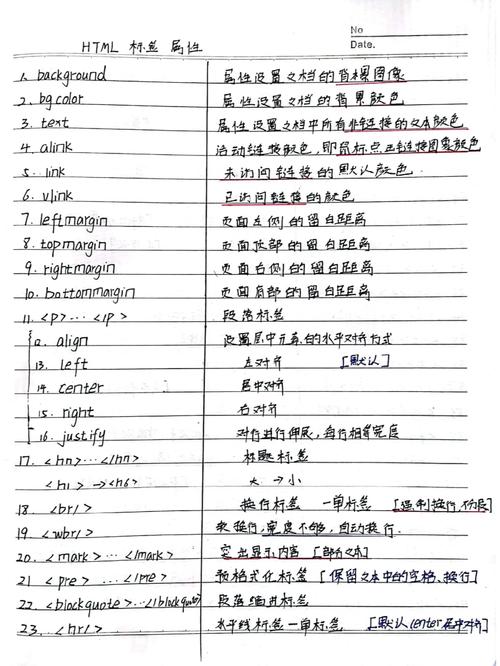 No
Date.
HTML 标签 属性
1. background 属性设置文档的背景图像
2. bgcolor 属性设置文档的背景颜色
3. text 属性设置文档中所有非链接的文本颜色
4. alink 活动链接颜色,即鼠标点击链接图案颜色
5. link 未访问链接的默认颜色.
6. vlink 已访问链接的颜色
7. leftmargin 页面左侧的留白距离
8. topmargin 页面顶部的留白距离
9. rightmargin 页面右侧的留白距离
10. bottommargin 页面底部的留白距离
11. <p>...</p> 段落标签
12. align 设置层中元素的水平对齐方式
13. left 左对齐 [默认]
14. center 居中对齐
15. right 右对齐
16. justify 对行进行伸展,每行相等宽度
17. <hn>...</hn> 标题标签
<h1 >→<h6> 大→小
18. <br/> 换行标签 一单标签 [强制换行,不分段]
19. <wbr/> 软换行,宽度不够,自动换行.
20. <mark>...</mark> 突出显示内容 [部分文本]
21 <pre>...</pre> 预格式化标签 [保留文本中的空格、换行]
22. <blockquote>...</blockquote> 段落缩进标签
23. <hr/> 水平线标签一单标签 [默认center居中对齐]